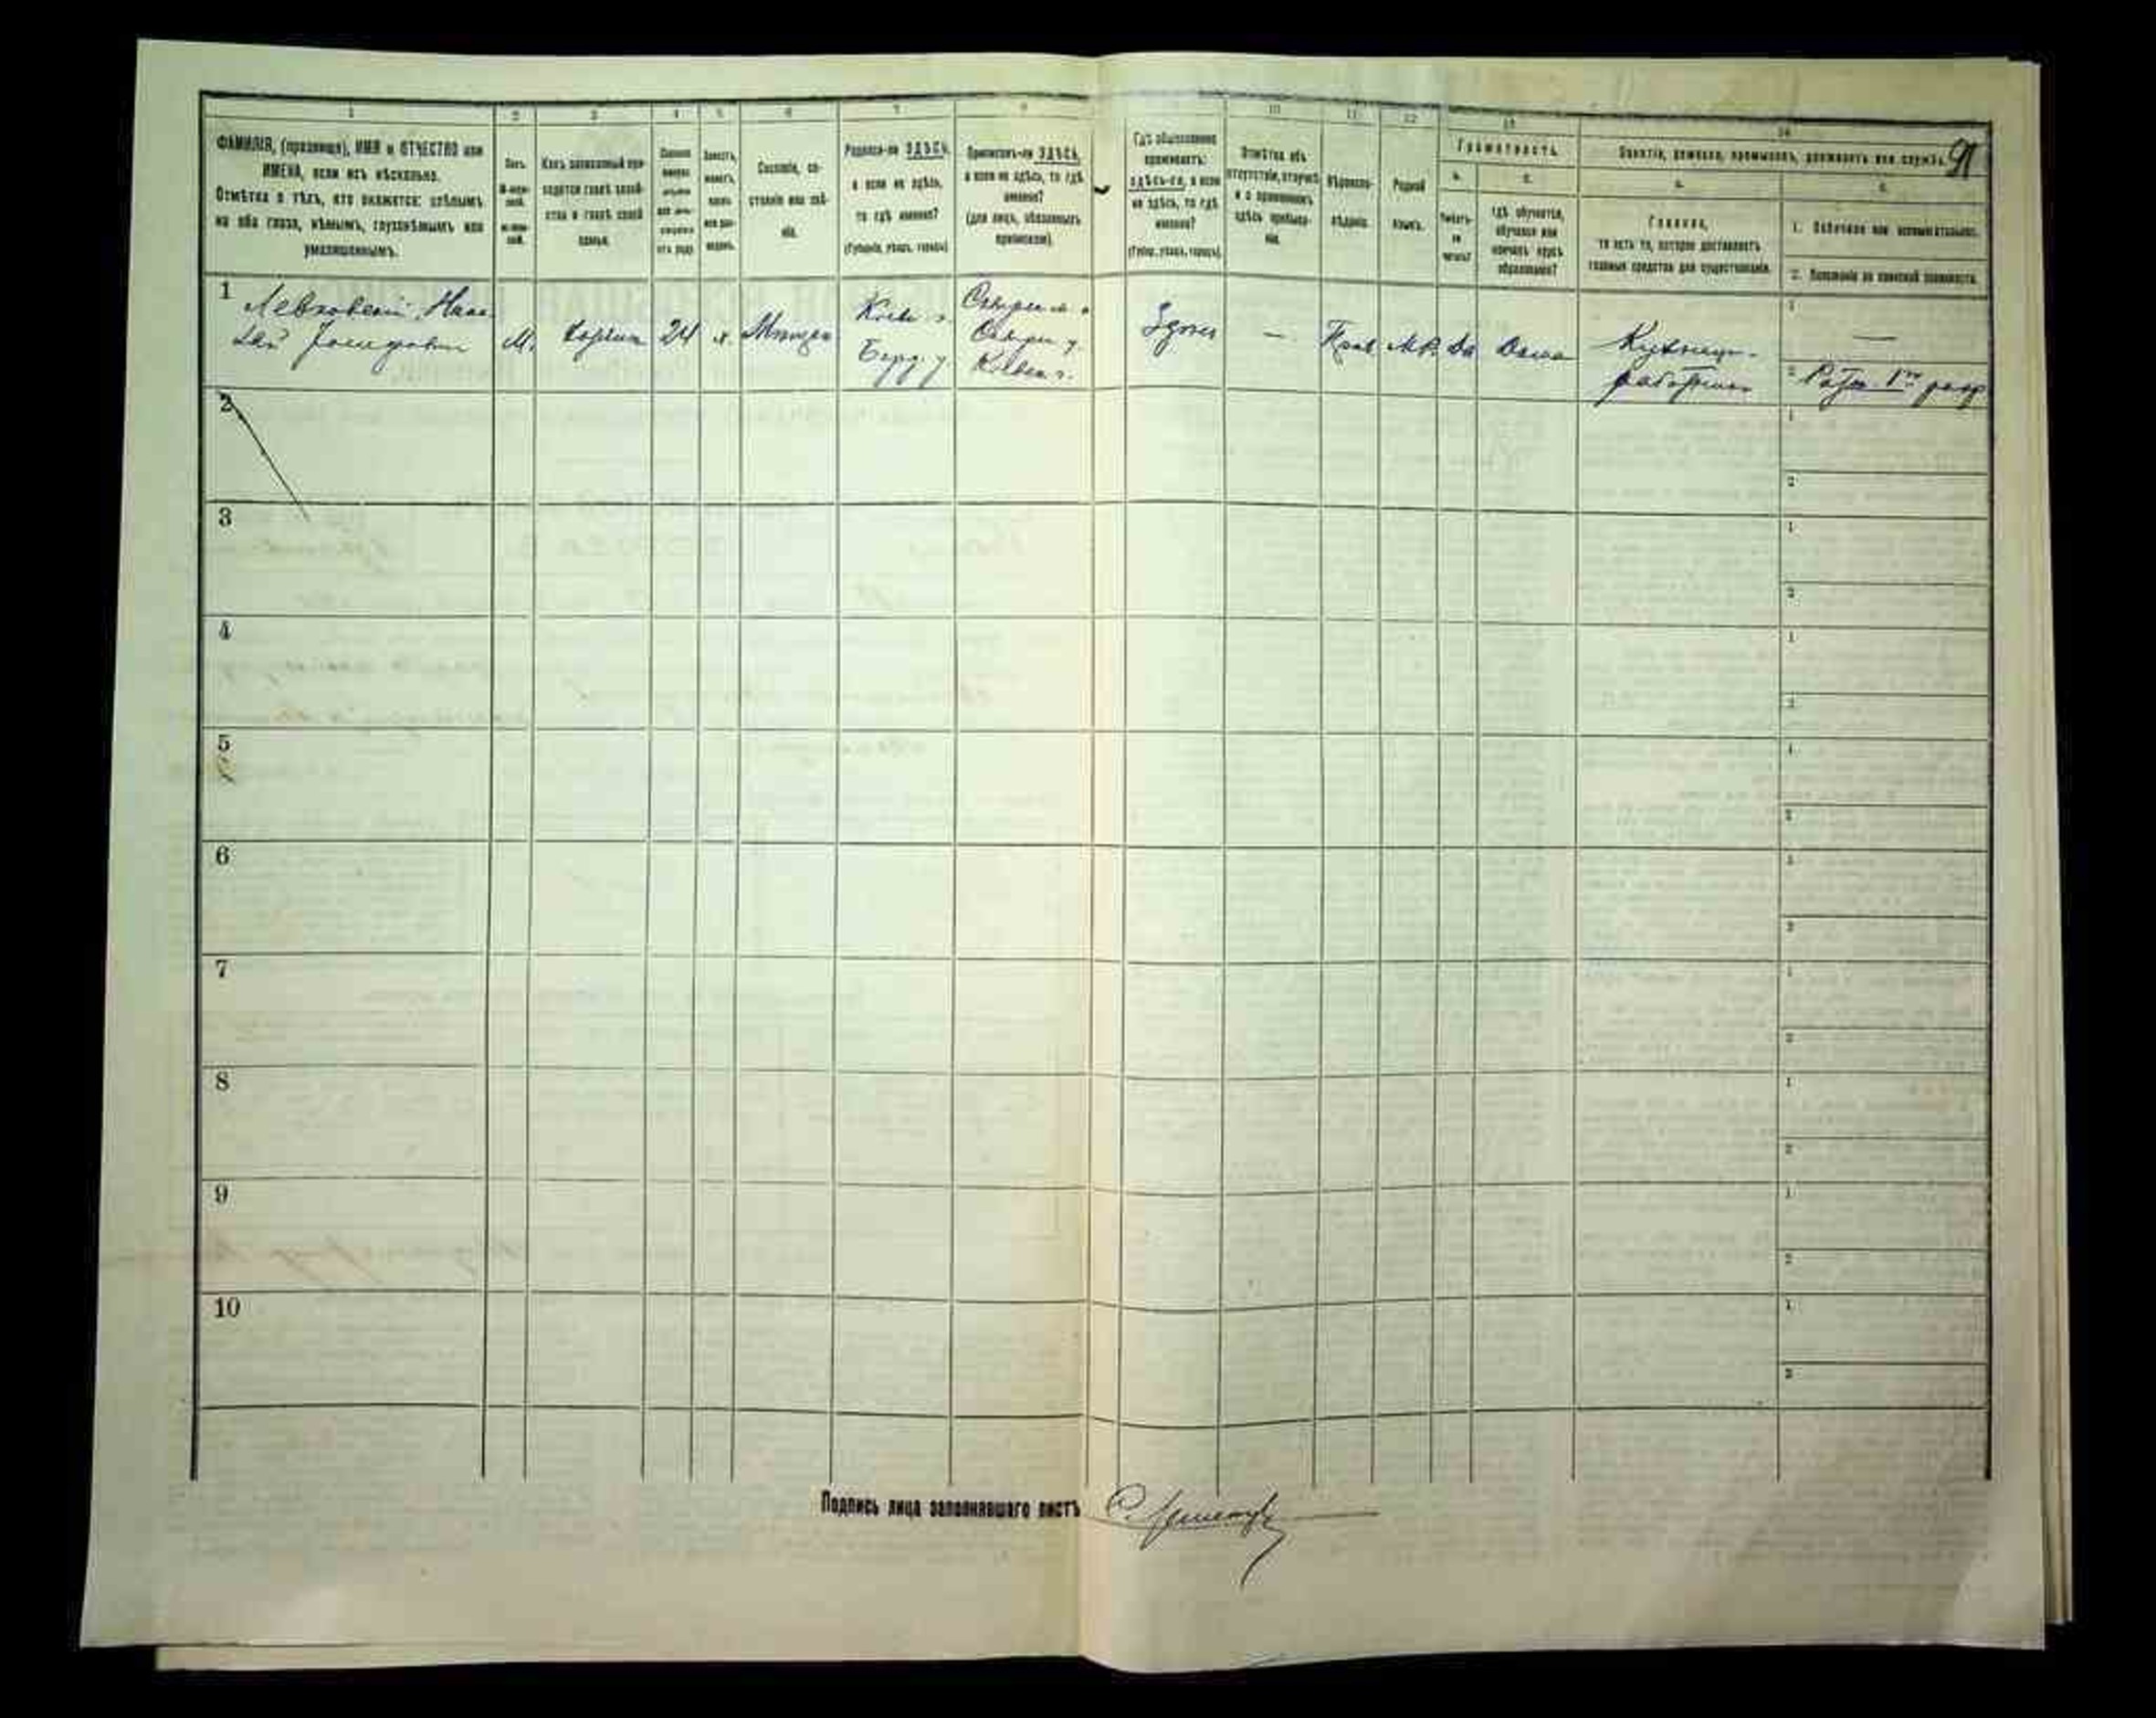 1
2
3
4
5
6
7
10
11
12
13
14
91
ФАМИЛІЯ, (прозвище), ИМЯ и ОТЧЕСТВО или
ИМЕНА, если ихъ нѣсколько.
Отмѣтка о тѣхъ, кто окажется: слѣпымъ
на оба глаза, нѣмымъ, глухонѣмымъ или
умалишеннымъ.
Полъ.
Какъ записанный при-
ходится главѣ хозяй-
ства и главѣ своей
семьи.
Сословіе, со-
стояніе или зва-
ніе.
Родился-ли ЗДѢСЬ,
а если не здѣсь,
то гдѣ именно?
(Губернія, уѣздъ, городъ)
Приписанъ-ли ЗДѢСЬ,
а если не здѣсь, то гдѣ
именно?
(для лицъ, обязанныхъ
припискою).
Гдѣ обыкновенно
проживаетъ:
здѣсь-ли, а если
не здѣсь, то гдѣ
именно?
(Губер., уѣздъ, городъ).
Отмѣтка объ
отсутствіи, отлучкѣ
и о временномъ
здѣсь пребыва-
ніи.
Вѣроиспо-
вѣданіе.
Родной
языкъ.
Грамотность.
а.
Умѣетъ-
ли
читать?
б.
гдѣ обучается,
обучался или
кончилъ курсъ
образованія?
Занятіе, ремесло, промыселъ, должность или служба.
а.
Главное,
то есть то, которое доставляетъ
главныя средства для существованія.
б.
1. Побочное или вспомогательное.
2. Положеніе по воинской повинности.
1
М.
24
Кіев. г.
Берд. у.
Сквир. у.
Кіевск. г.
Здѣсь
—
Прав
М.Р.
Да
Дома
Кузнецъ-
работникъ
1
—
2
Ратн. 1го разр
2
1
2
3
1
2
4
1
2
5
1
2
6
1
2
7
1
2
8
1
2
9
1
2
10
1
2
Подпись лица заполнявшаго листъ